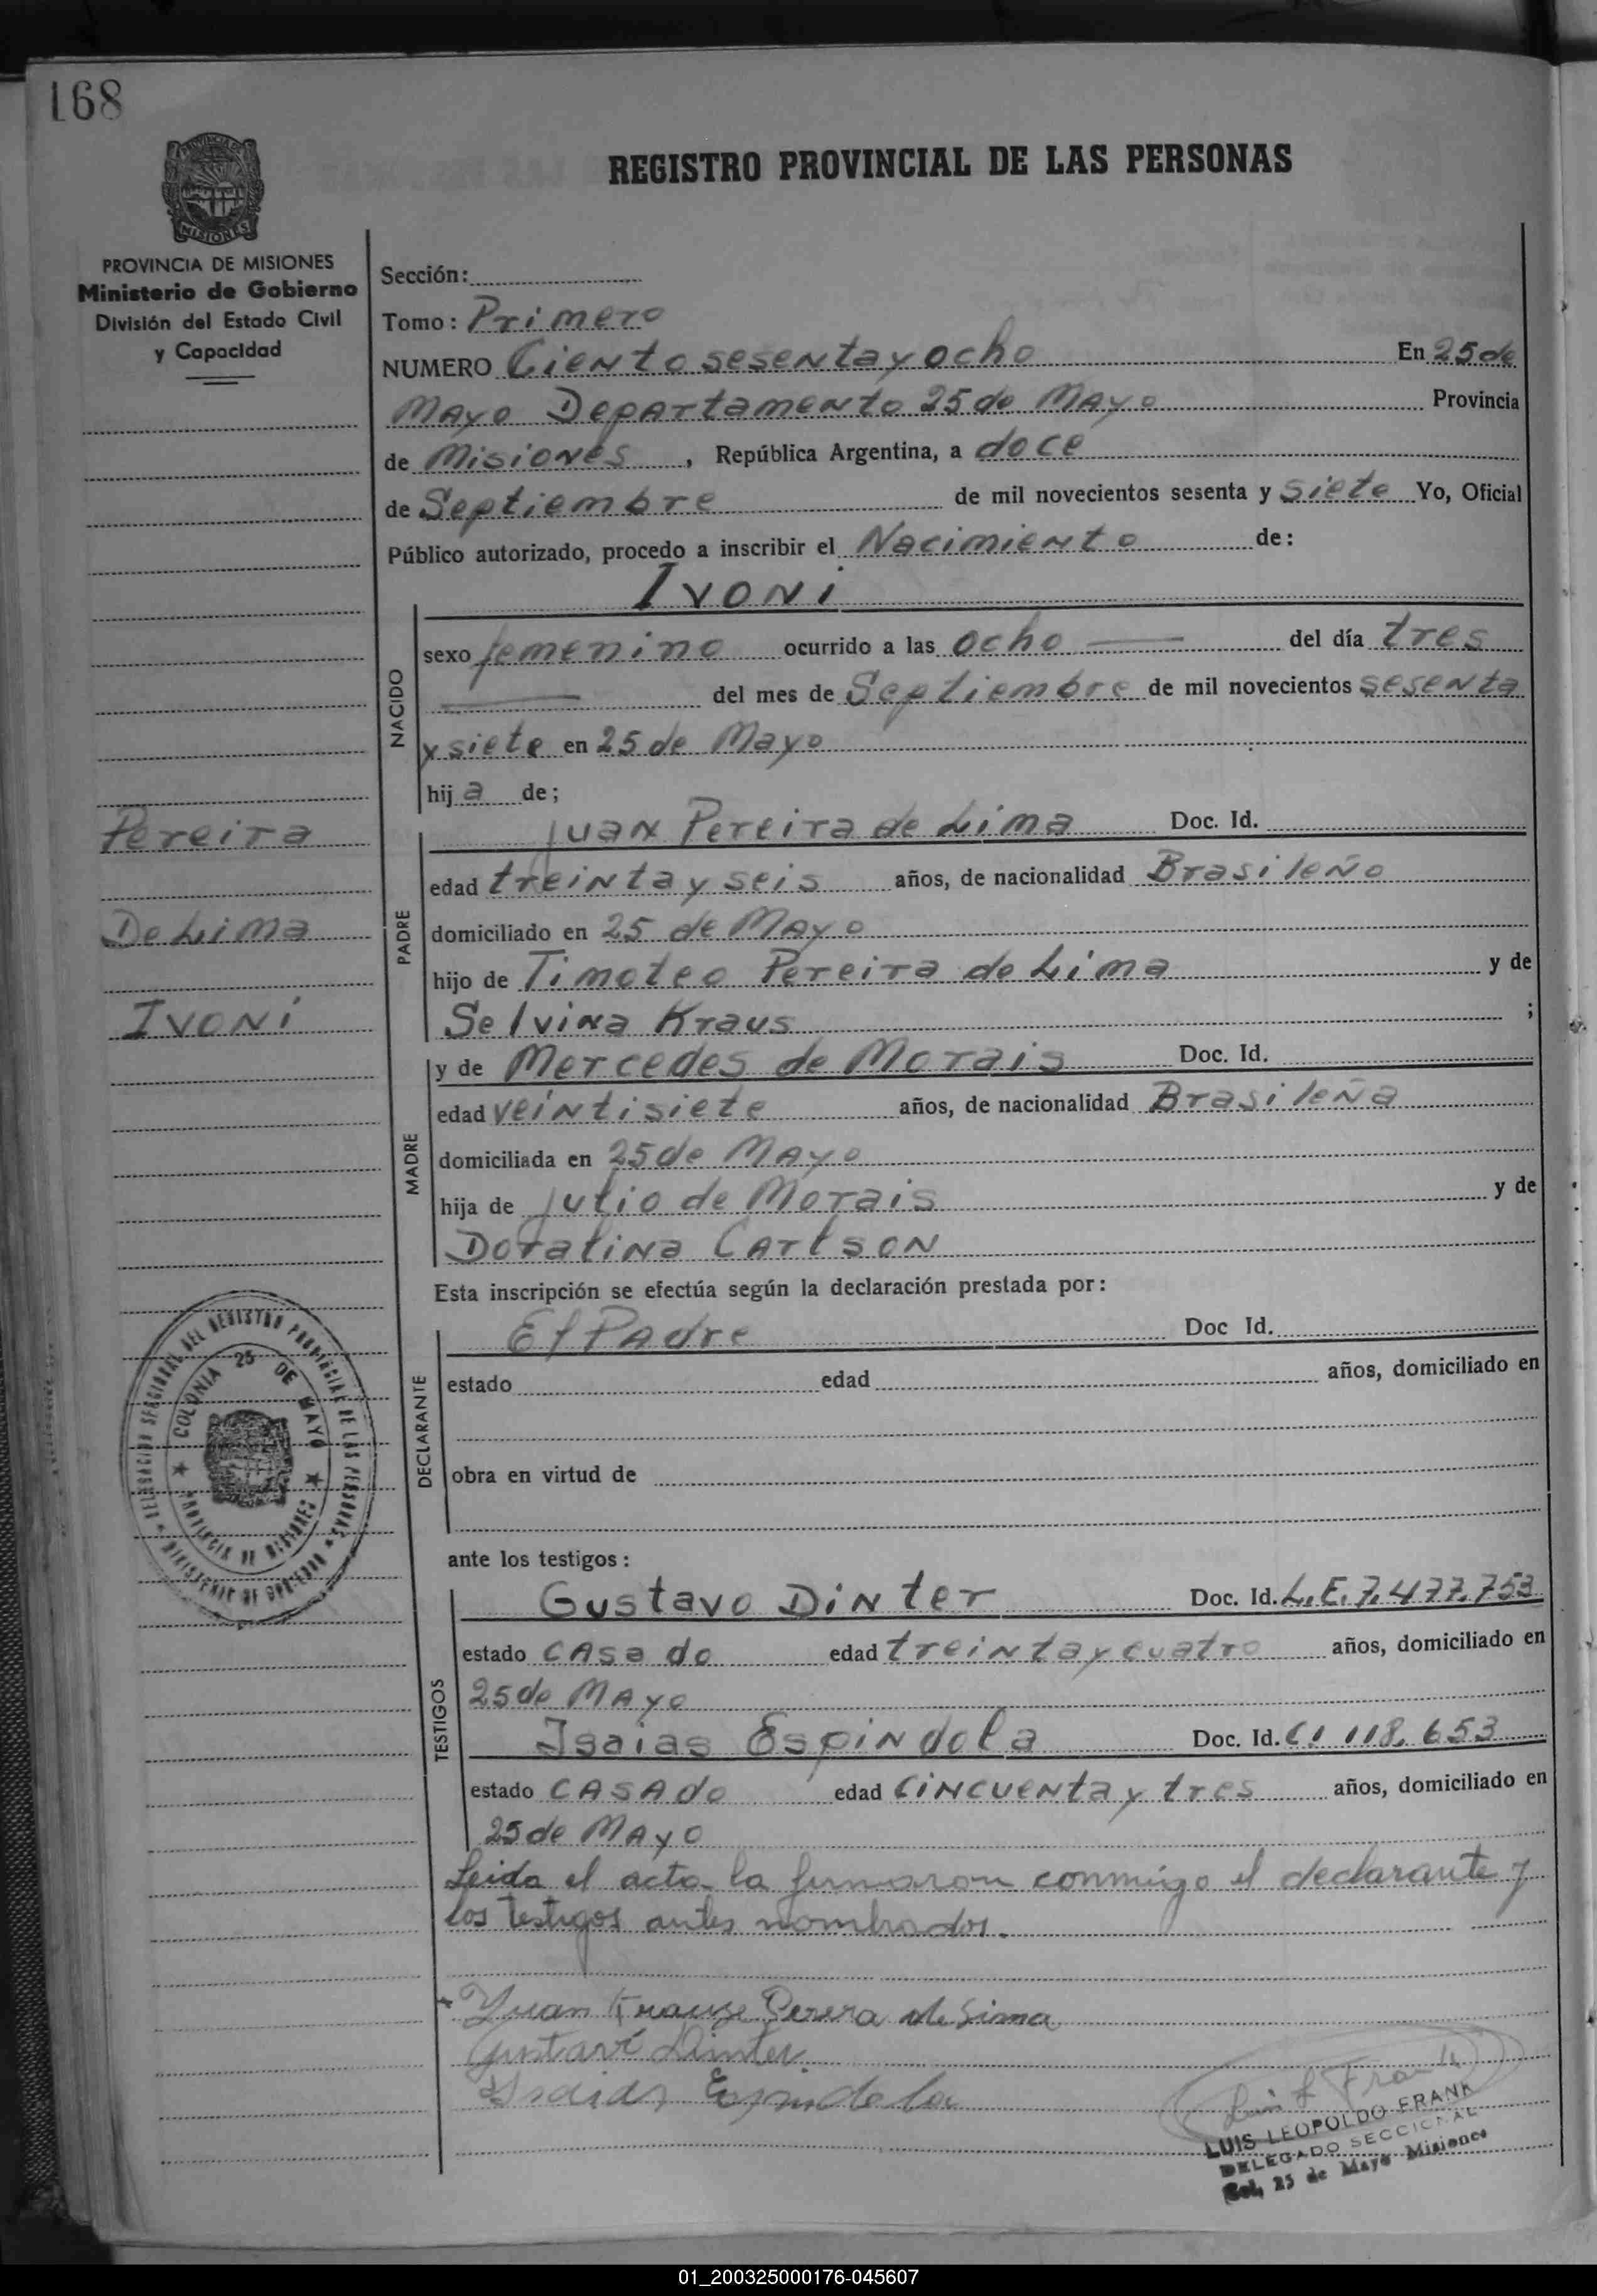 168
PROVINCIA DE MISIONES
REGISTRO PROVINCIAL DE LAS PERSONAS
PROVINCIA DE MISIONES
Ministerio de Gobierno
División del Estado Civil
y Capacidad
Sección:
Tomo: Primero
NUMERO Ciento sesenta y ocho En 25 de
Mayo Departamento 25 de Mayo Provincia
de Misiones, República Argentina, a doce
de Septiembre de mil novecientos sesenta y siete Yo, Oficial
Público autorizado, procedo a inscribir el Nacimiento de:
Ivoni
NACIDO
sexo femenino ocurrido a las ocho — del día tres
— del mes de Septiembre de mil novecientos sesenta
y siete en 25 de Mayo
hij a de;
Pereira
De Lima
Ivoni
PADRE
Juan Pereira de Lima Doc. Id.
edad treinta y seis años, de nacionalidad Brasileño
domiciliado en 25 de Mayo
hijo de Timoteo Pereira de Lima y de
Selvina Kraus ;
MADRE
y de Mercedes de Morais Doc. Id.
edad veintisiete años, de nacionalidad Brasileña
domiciliada en 25 de Mayo
hija de Julio de Morais y de
Doralina Carlson
Esta inscripción se efectúa según la declaración prestada por:
DECLARANTE
El Padre Doc Id.
estado edad años, domiciliado en
obra en virtud de
DELEGACION SECCIONAL DEL REGISTRO PROVINCIAL DE LAS PERSONAS
COLONIA 25 DE MAYO
PROVINCIA DE MISIONES
MINISTERIO DE GOBIERNO
ante los testigos:
TESTIGOS
Gustavo Dinter Doc. Id. L.E. 7.477.753
estado casado edad treinta y cuatro años, domiciliado en
25 de Mayo
Isaias Espindola Doc. Id. CI 118.653
estado casado edad cincuenta y tres años, domiciliado en
25 de Mayo
Leida el acta la firmaron conmigo el declarante y
los testigos antes nombrados.
Juan Krause Perera de Lima
Gustavo Dinter
Isaias Espindola
Luis L Frank
LUIS LEOPOLDO FRANK
DELEGADO SECCIONAL
Col. 25 de Mayo Misiones
01_200325000176-045607